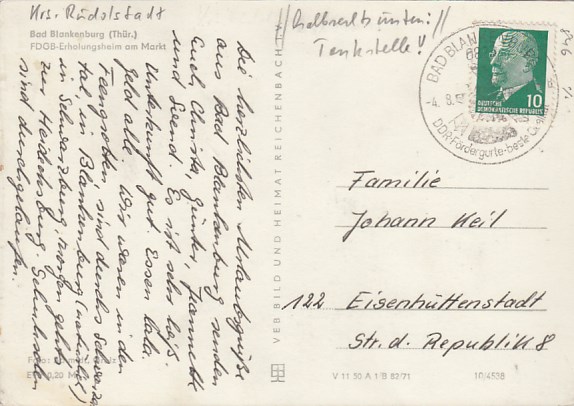 Krs. Rudolstadt
Bad Blankenburg (Thür.)
FDGB-Erholungsheim am Markt
//halbrechts unten://
Tankstelle!!
Die herzlichsten Urlaubsgrüße
aus Bad Blankenburg senden
euch Christa, Günter,
und Svend. Es ist sehr heiß.
Unterkunft gut. Essen
Feld ab. Wir waren in den
Feengrotten sind durchs Schwarza-
tal, in Blankenburg (natürlich)
in Schwarzburg, morgen geht's
zu Heidecksburg.
sind durchgelaufen.
VEB BILD UND HEIMAT REICHENBACH i. V.
BAD BLANKENBURG
-4. 8.
DEUTSCHE
DEMOKRATISCHE REPUBLIK
10
Familie
Johann Keil
122 Eisenhüttenstadt
Str. d. Republik 8
Foto:
EVP 0,20 M
V 11 50 A 1 B 82/71
10/4538